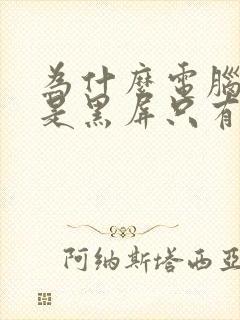 為什麼電腦
是黑屏只有
阿纳斯塔西亚